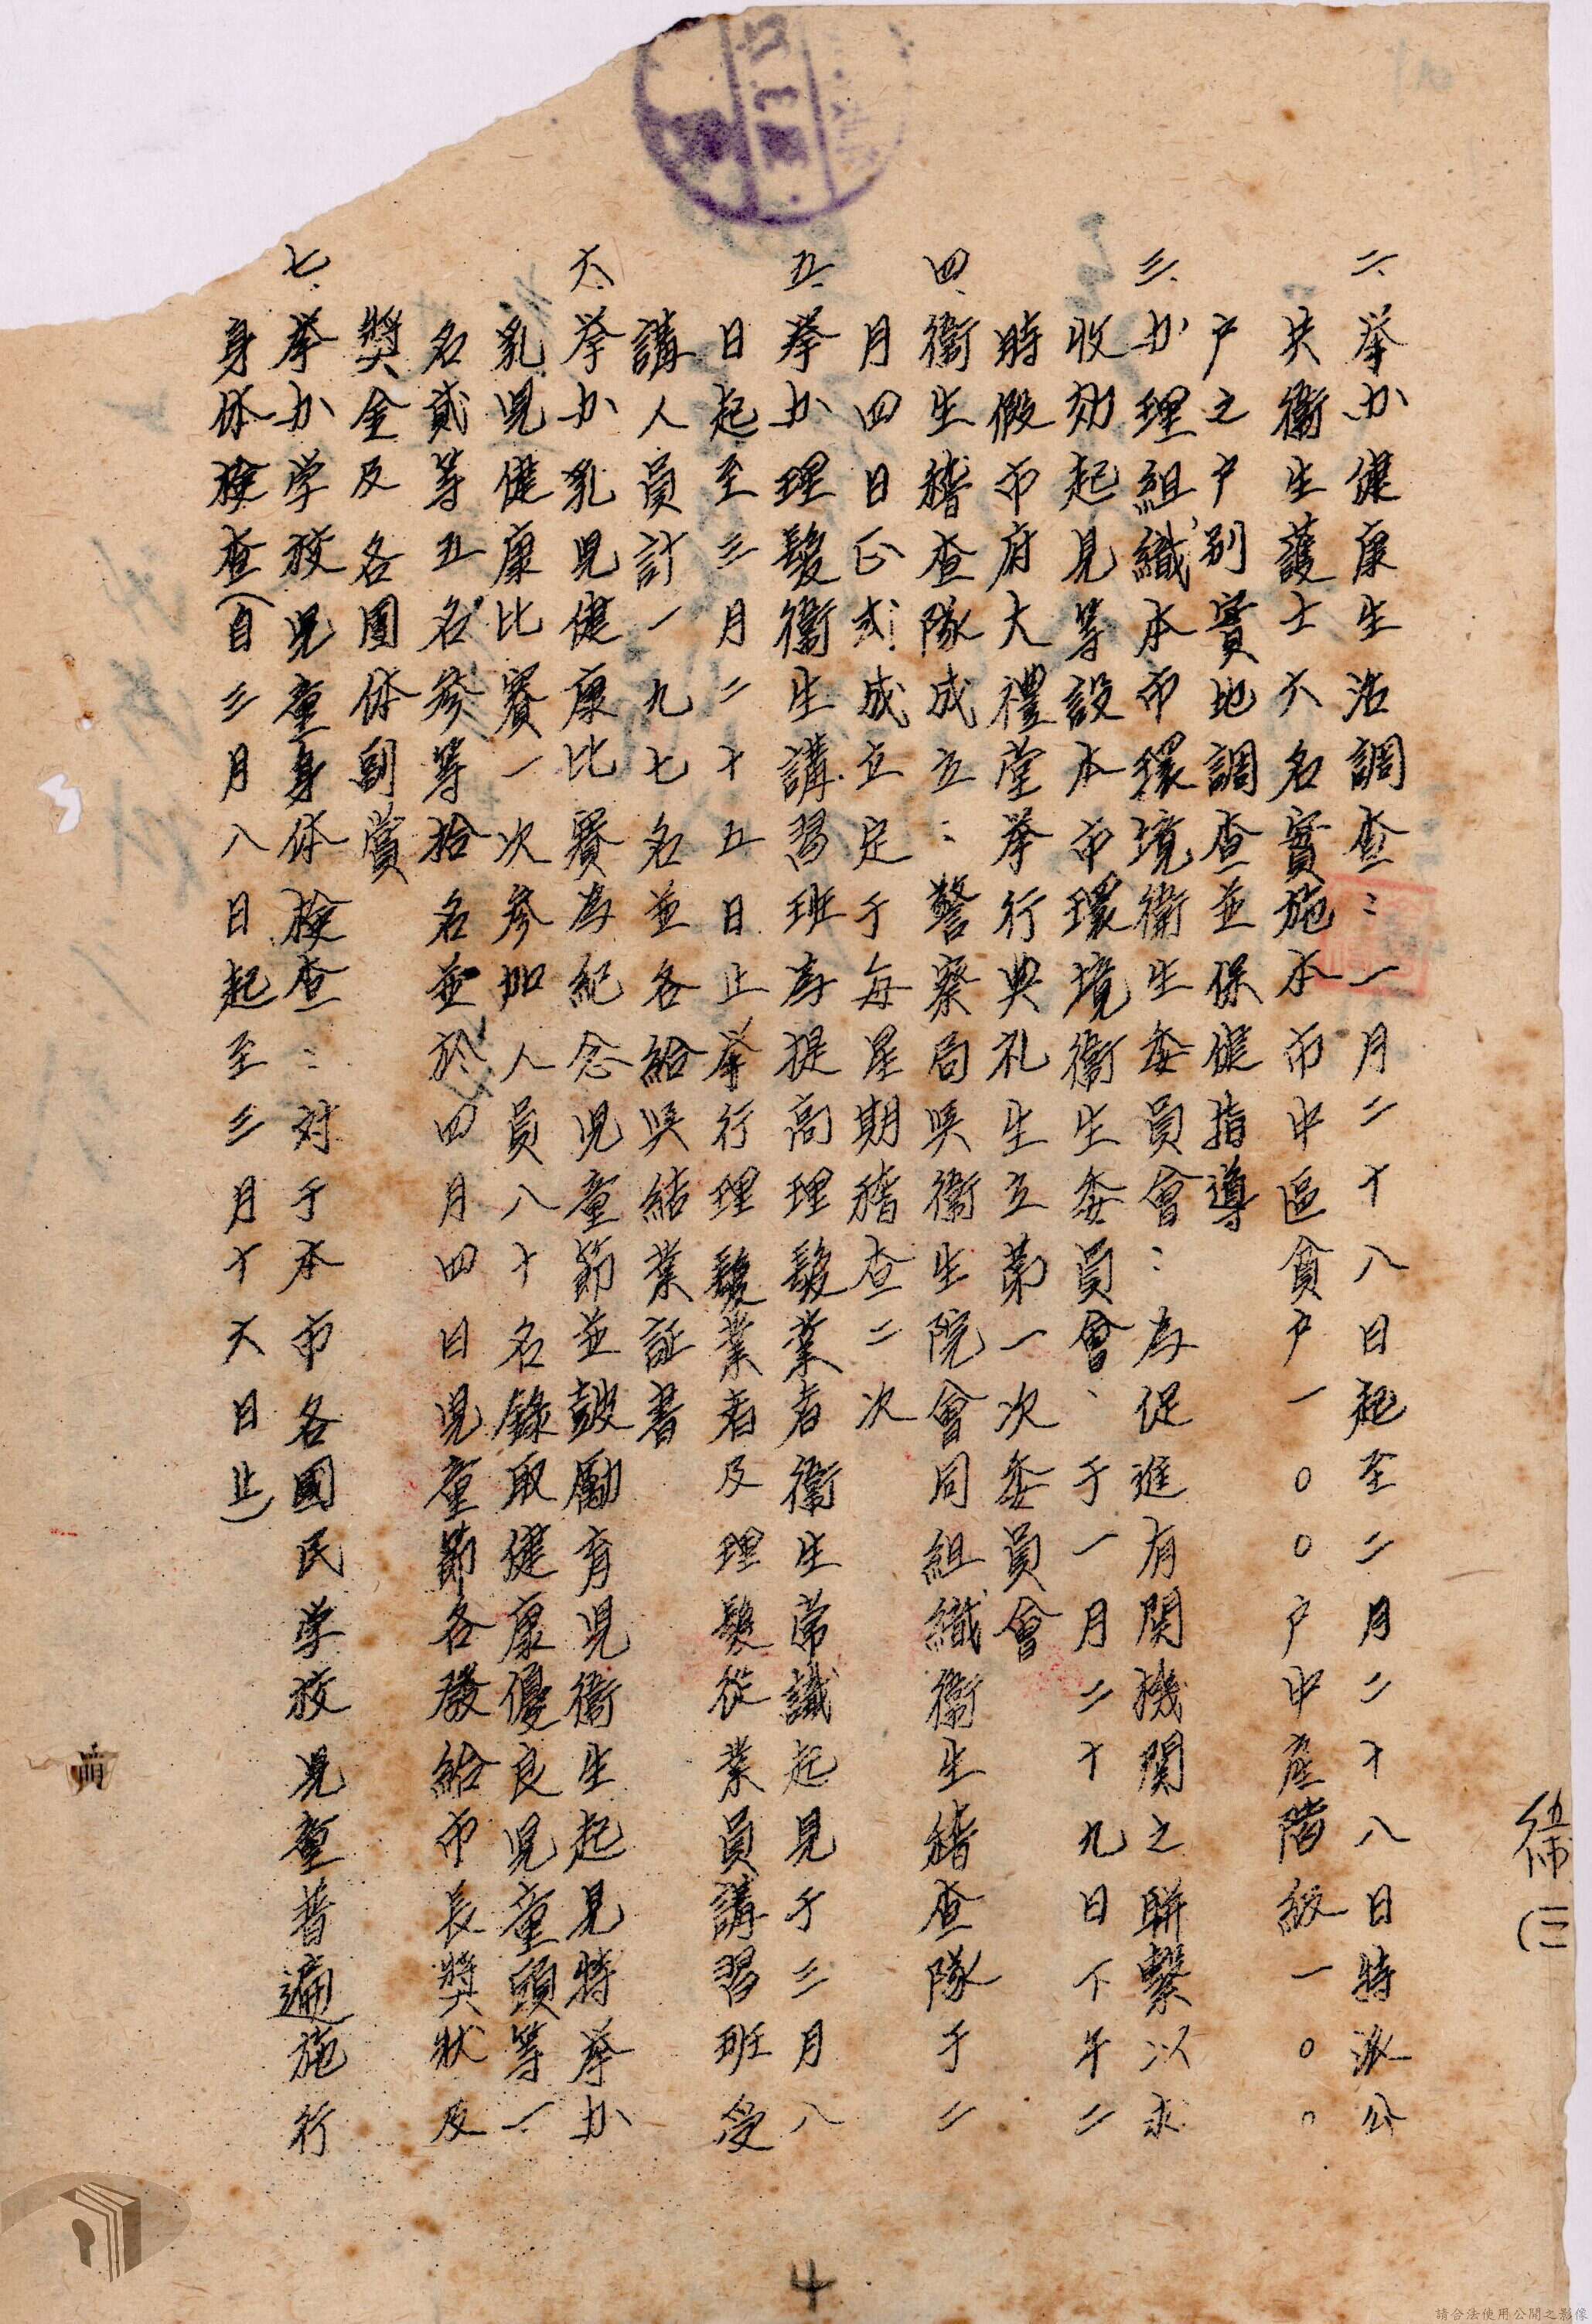 衛(三
二、挙办健康生活調查：一月二十八日起至二月二十八日特派公
共衛生護士六名實施本市中區貧户一〇〇户中產階級一〇〇
户之户别實地調查並保健指導
三、办理組織本市環境衛生委員會：為促進有関機関之聯繫以求
收効起見等設本市環境衛生委員會、于一月二十九日下午二
時假市府大禮堂挙行典礼生立第一次委員會
四、衛生稽查隊成立：警察局吳衛生院會同組織衛生稽查隊于二
月四日正式成立定于每星期稽查二次
五、挙办理髮衛生講習班為提高理髮業者衛生常識起見于三月八
日起至三月二十五日止挙行理髮業者及理髮從業員講習班受
講人員計一九七名並各給吳結業証書
六、挙办乳児健康比賽為紀念児童節並鼓勵育児衛生起見特挙办
乳児健康比賽一次參加人員八十名錄取健康優良児童頭等一
名貳等五名參等拾名並於四月四日児童節各發給市長獎狀及
獎金及各團体副賞
七、挙办学校児童身体檢查：対于本市各國民学校児童普遍施行
身体檢查(自三月八日起至三月十六日止)
4
請合法使用公開之影像